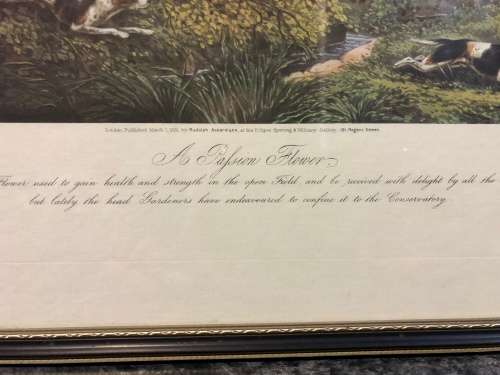 London, Published March 1, 1851, by Rudolph Ackermann, at his Eclipse Sporting & Military Gallery, 191 Regent Street.
A Passion Flower
Flower used to gain health and strength in the open Field, and be received with delight by all the
but lately the head Gardeners have endeavoured to confine it to the Conservatory.